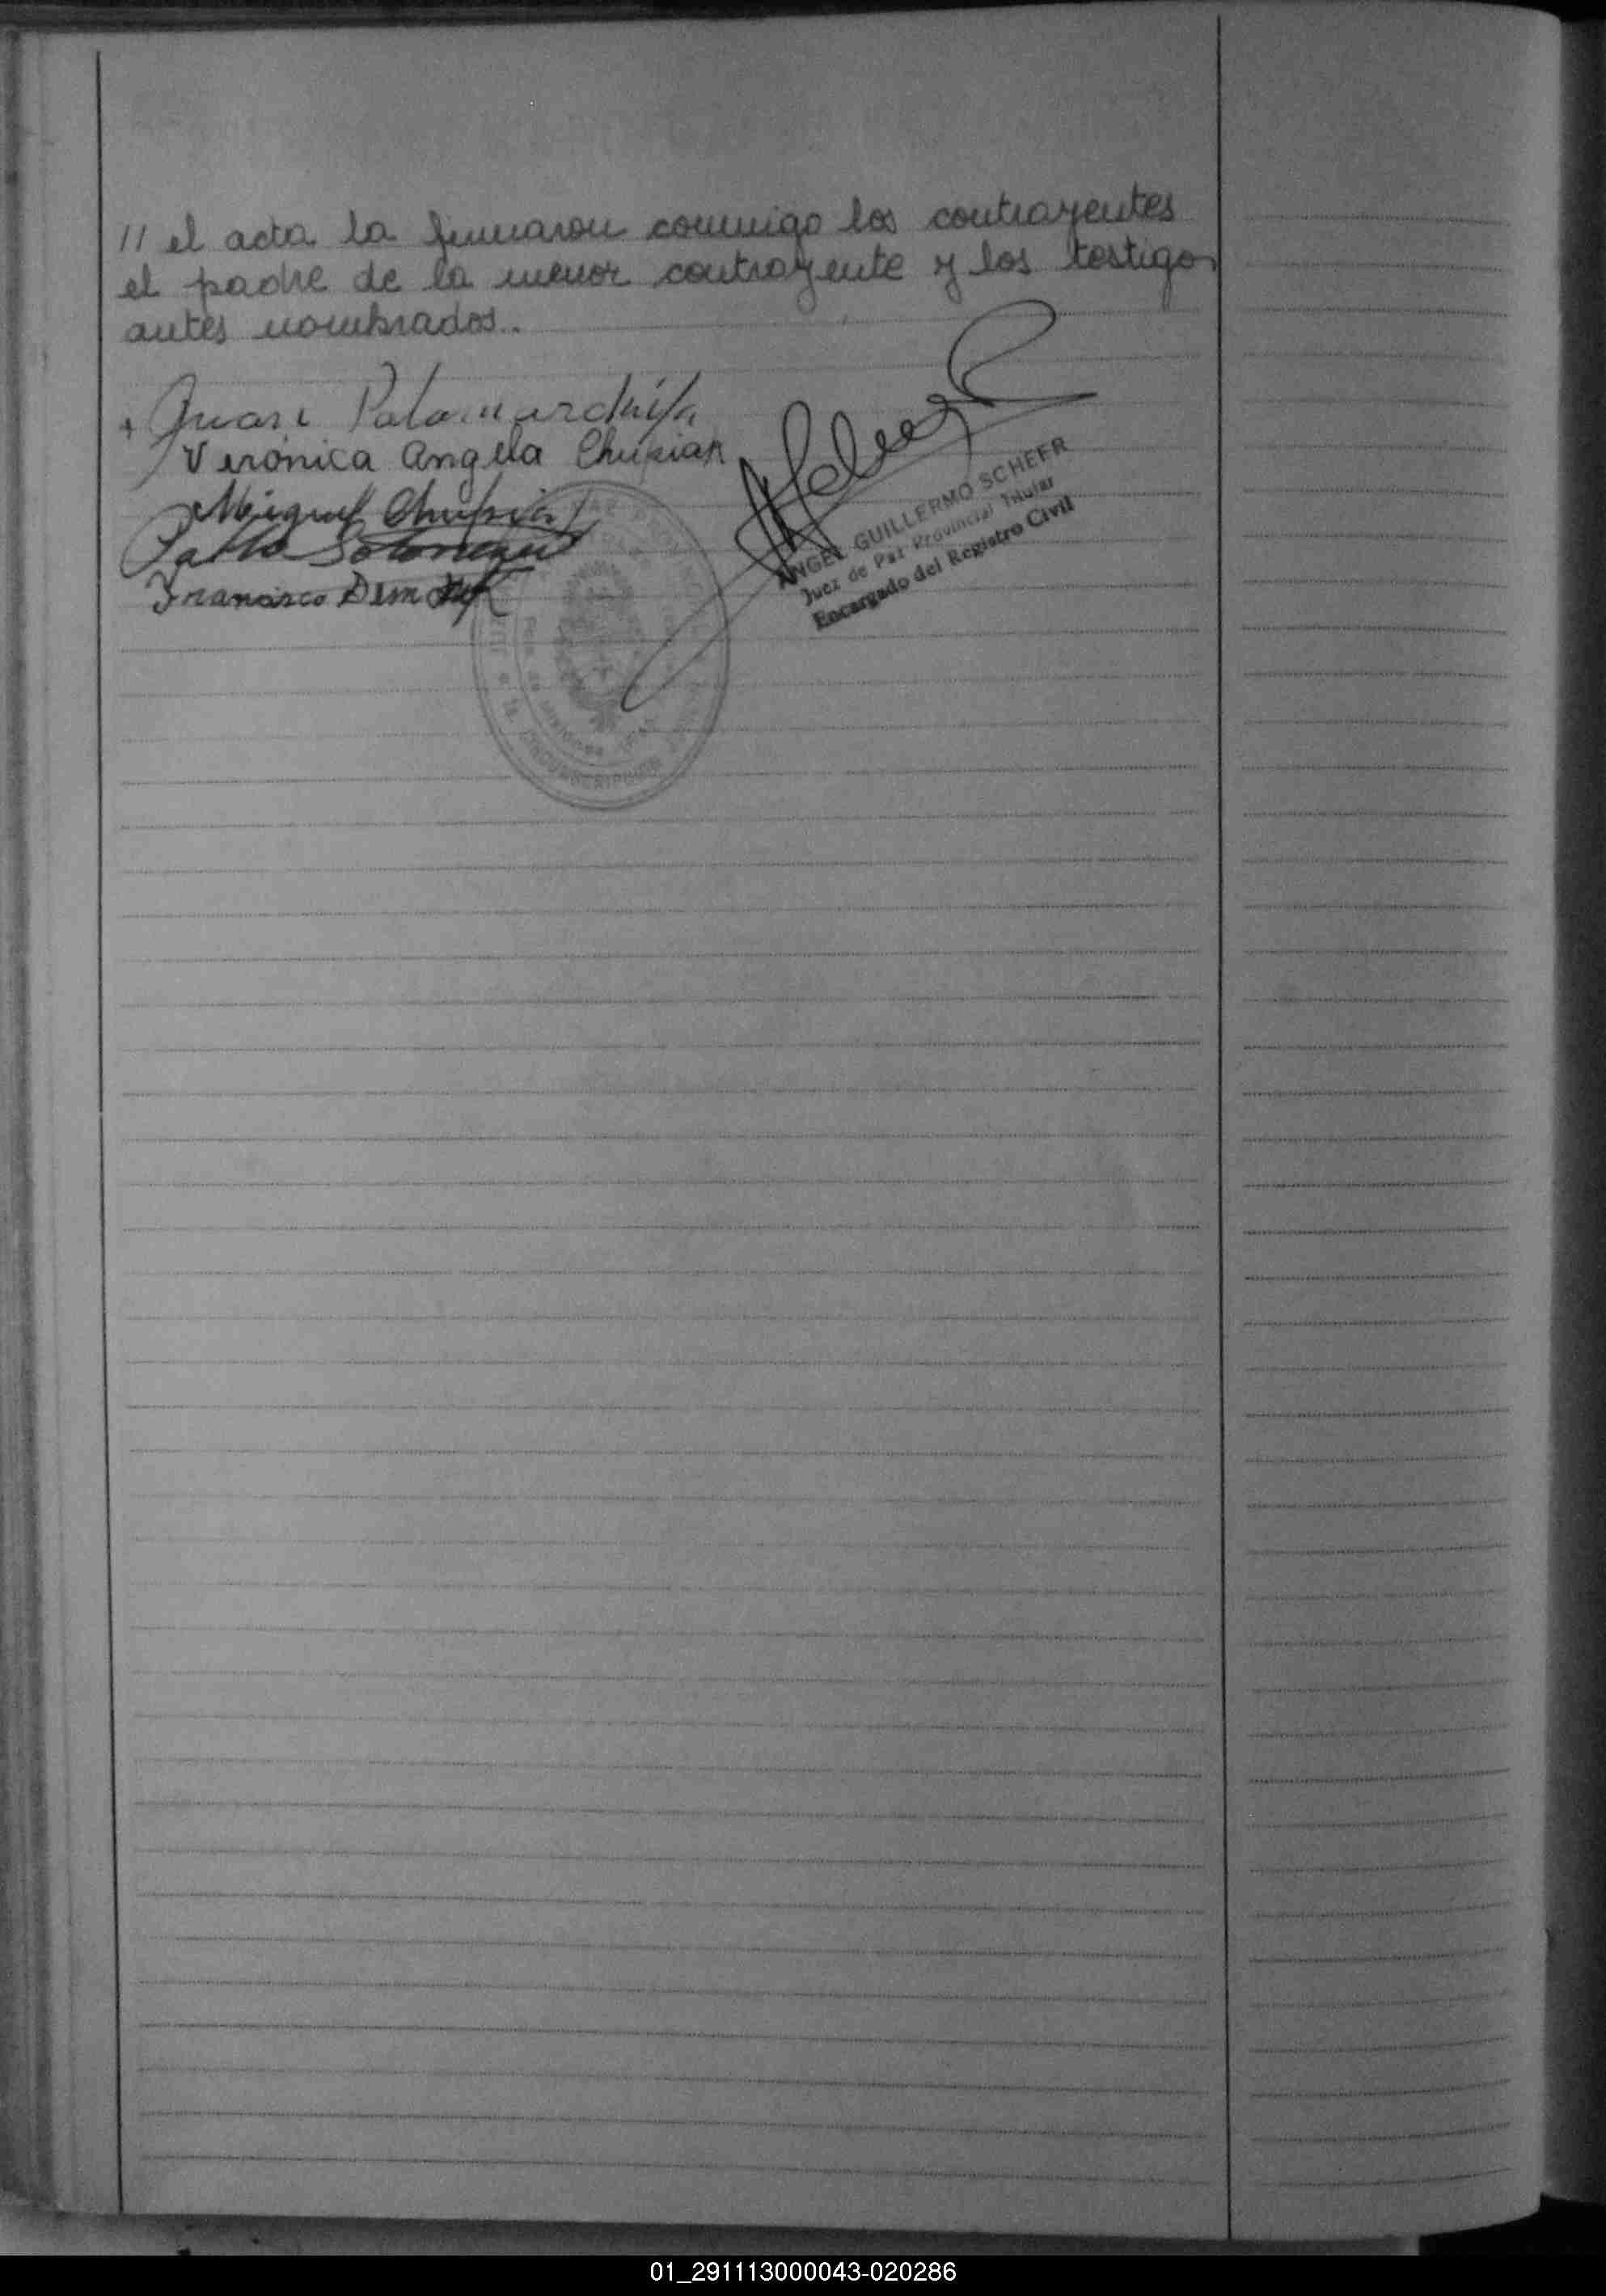 // el acta la firmaron conmigo los contrayentes
el padre de la menor contrayente y los testigos
antes nombrados.
Verónica Angela Chupiak
Miguel
Pablo
Francisco
ANGEL GUILLERMO SCHEFR
Juez de Paz Provincial Titular
Encargado del Registro Civil
01_291113000043-020286